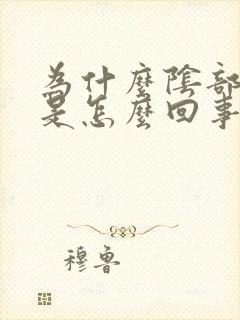 為什麼陰部
是怎麼回事
穆魯